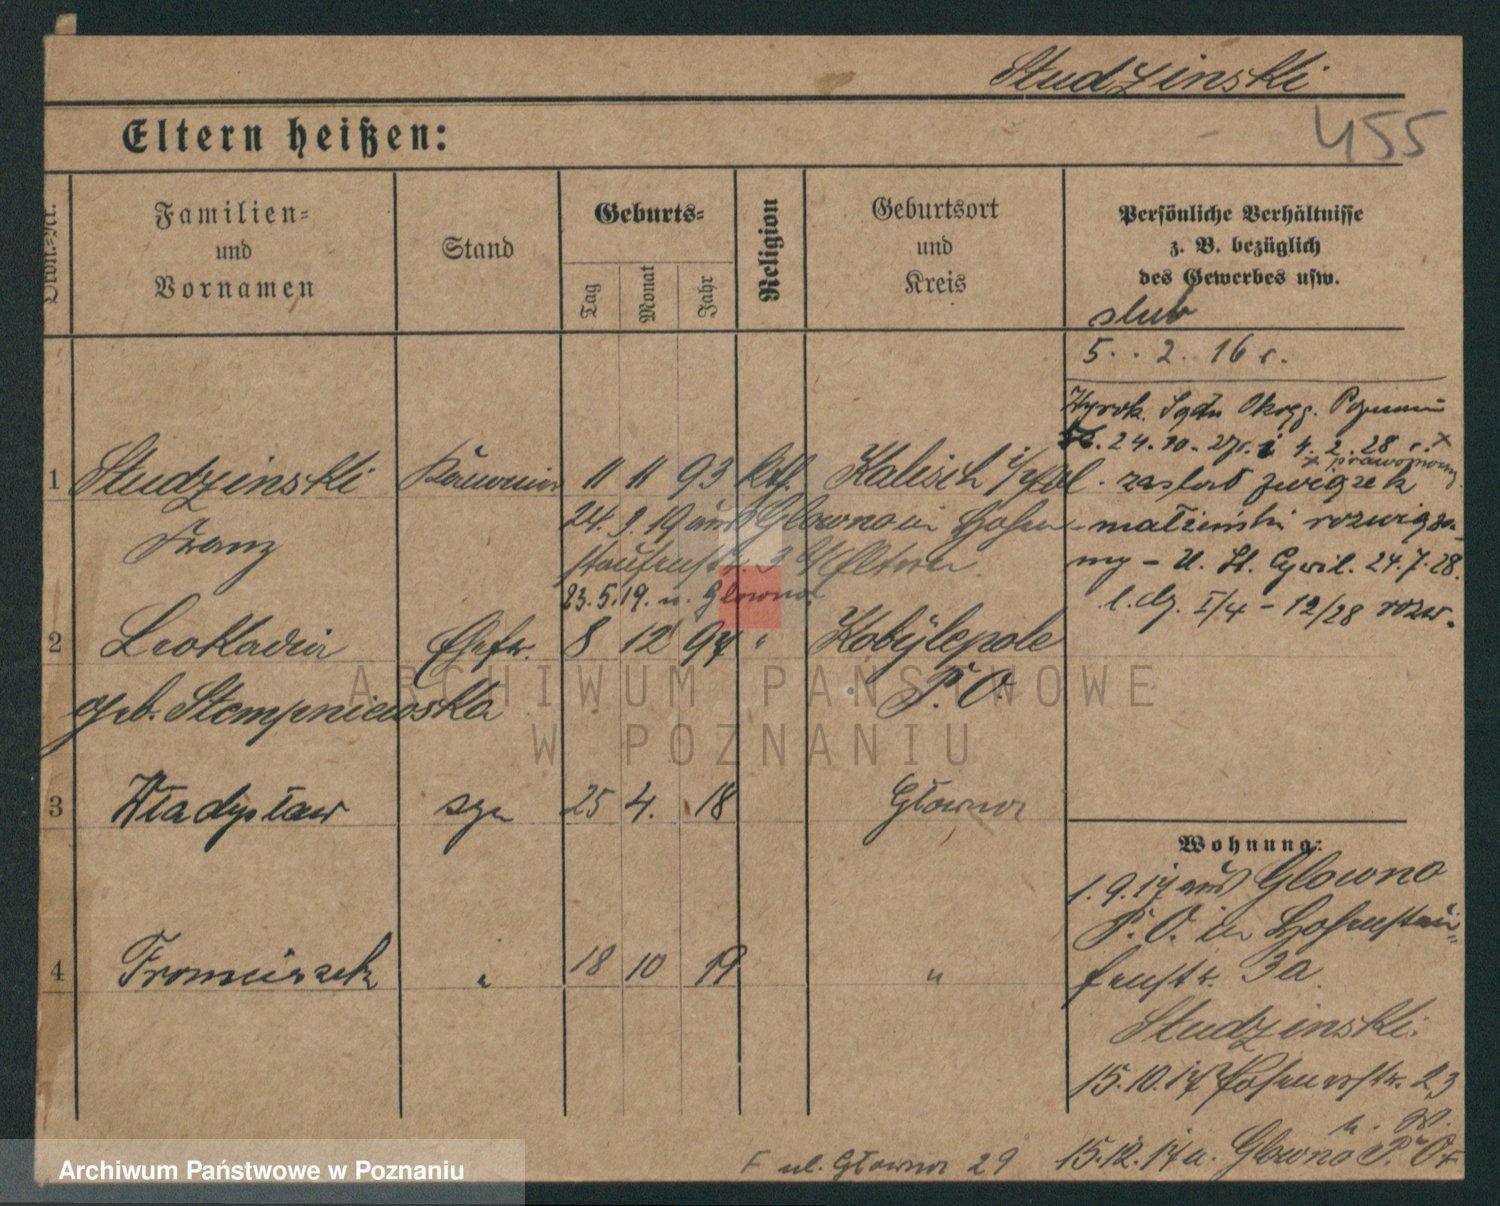 Studzinski
455
Eltern heißen:
Ordn.=Nr.
Familien=
und
Vornamen
Stand
Geburts=
Tag
Monat
Jahr
Religion
Geburtsort
und
Kreis
Persönliche Verhältnisse
z. B. bezüglich
des Gewerbes usw.
slub
5. . 2. 16 r.
Wyrok. Sądu Okręg.
24.10.27r. i 4. 2. 28 r. x
x prawomocny
1 Studzinski 11 11 93 kth. Kalisch
zastał związek
Franz
24. 9. 19 aus Glowno in Hohen-
małżeński rozwiąza-
staufenstr. 3 b/Eltern
ny - U. St. Cywil. 24.7.28.
23.5.19. n. Glowno
l. dz. I/4 - 12/28 rozw.
2 Leokadia Ehefr. 8 12 94 " Kobylepole
P. O.
geb. Stempniewska
ARCHIWUM PAŃSTWOWE
W POZNANIU
3 Władysław syn 25 4. 18 Główna
Wohnung:
1.9.17 aus Glowno
P. O. in Hohenstau=
4 Franciszek " 18 10 19 "
fenstr. 3a
Studzinski.
15.10.17 Posenerstr. 23
b. W.
ul. Główna 29
15.12.17 n. Glowno P. O.
Archiwum Państwowe w Poznaniu